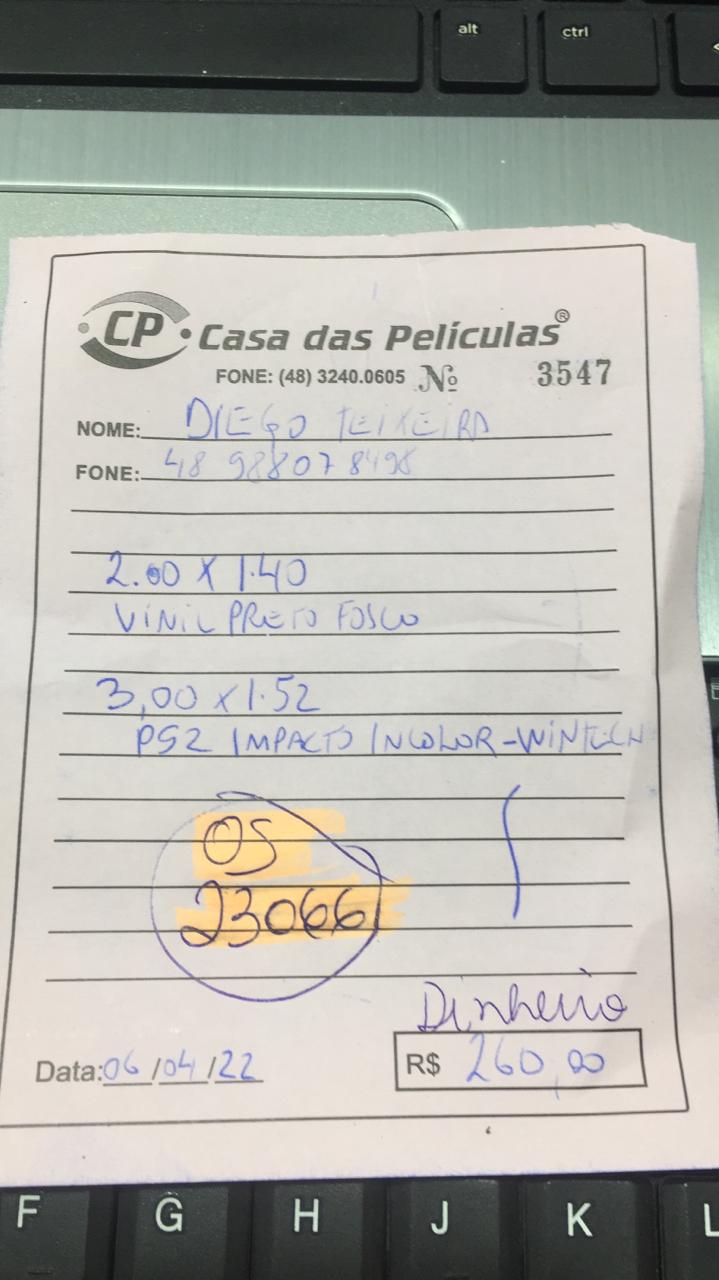 alt
ctrl
CP Casa das Películas®
FONE: (48) 3240.0605 Nº 3547
NOME: DIEGO TEIXEIRA
FONE: 48 98807 8498
2.00 X 1.40
VINIL PRETO FOSCO
3,00 X 1.52
PS2 IMPACTO INCOLOR - WINTECH
OS
23066
Dinheiro
Data: 06/04/22 R$ 260,00
F G H J K L